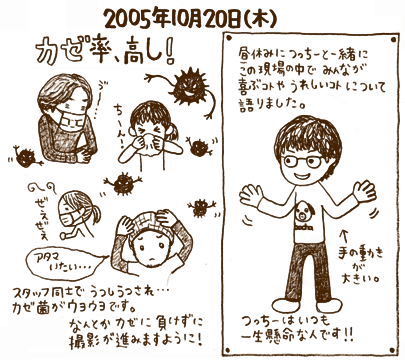 2005年10月20日(木)
カゼ率、高し!
う゛…
ち〜ん!
ぜぇぜぇ
アタマ
いたい…
スタッフ同士で うつしうつされ…
カゼ菌がウヨウヨです。
なんとかカゼに負けずに
撮影が進みますように!
昼休みにつっちーと一緒に
この現場の中で みんなが
喜ぶコトや うれしいコト について
語りました。
手の動き
が
大きい。
つっちーはいつも
一生懸命なんです!!